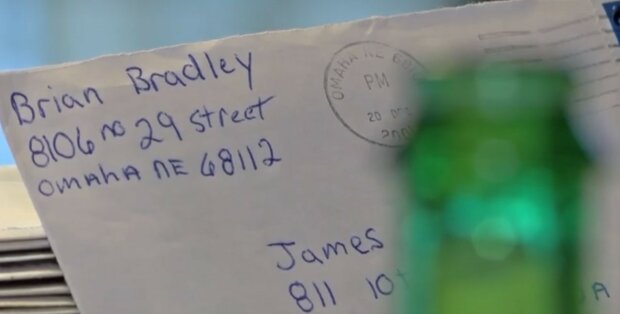 Brian Bradley
8106 no 29 street
OMAHA NE 68112
OMAHA NE
PM
20
James
811 10
A